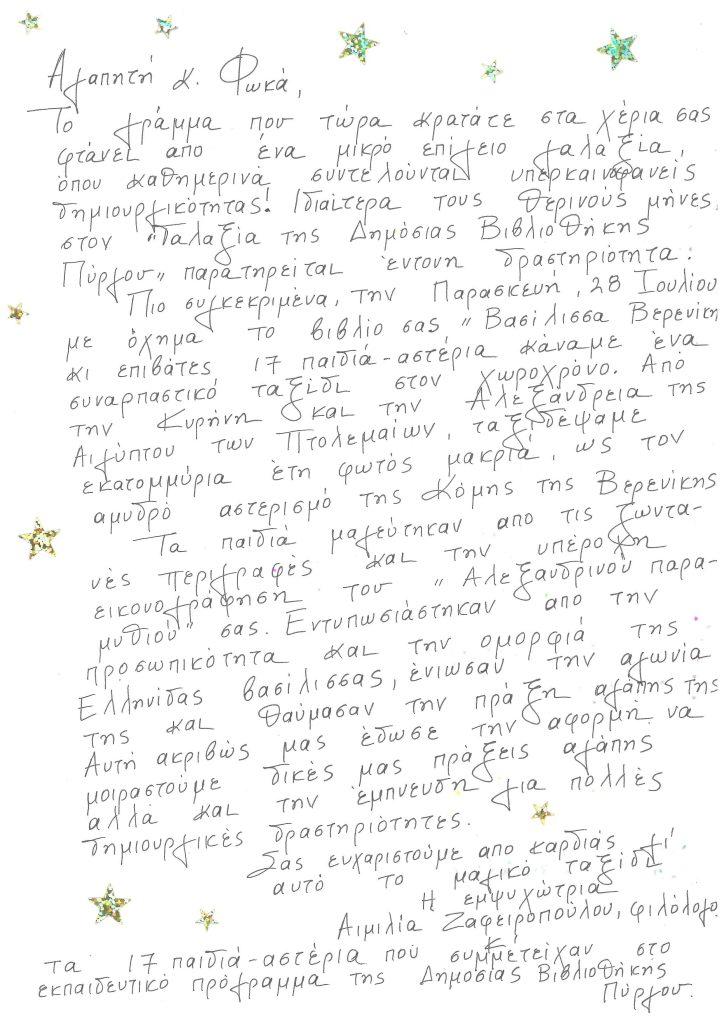 Αγαπητή κ. Φωκά,
Το γράμμα που τώρα κρατάτε στα χέρια σας
φτάνει απο ένα μικρό επίγειο γαλαξία,
όπου καθημερινά συντελούνται υπερκαινοφανείς
δημιουργικότητας! Ιδιαίτερα τους θερινούς μήνες,
στον "Γαλαξία της Δημόσιας Βιβλιοθήκης
Πύργου" παρατηρείται έντονη δραστηριότητα.
Πιο συγκεκριμένα, την Παρασκευή, 28 Ιουλίου
με όχημα το βιβλίο σας "Βασίλισσα Βερενίκη
κι επιβάτες 17 παιδιά-αστέρια κάναμε ένα
συναρπαστικό ταξίδι στον χωροχρόνο. Από
την Κυρήνη και την Αλεξάνδρεια της
Αιγύπτου των Πτολεμαίων, ταξιδέψαμε
εκατομμύρια έτη φωτός μακριά, ως τον
αμυδρό αστερισμό της Κόμης της Βερενίκης
Τα παιδιά μαγεύτηκαν απο τις ζωντα-
νές περιγραφές και την υπέροχη
εικονογράφηση του "Αλεξανδρινού παρα-
μυθιού" σας. Εντυπωσιάστηκαν απο την
προσωπικότητα και την ομορφιά της
Ελληνίδας βασίλισσας, ένιωσαν την αγωνία
της και θαύμασαν την πράξη αγάπης της
Αυτή ακριβώς μας έδωσε την αφορμή να
μοιραστούμε δικές μας πράξεις αγάπης
αλλά και την έμπνευση για πολλές
δημιουργικές δραστηριότητες.
Σας ευχαριστούμε απο καρδιάς γι'
αυτό το μαγικό ταξίδι
Η εμψυχώτρια
Αιμιλία Ζαφειροπούλου, φιλόλογο
κ'
τα 17 παιδιά-αστέρια που συμμετείχαν στο
εκπαιδευτικό πρόγραμμα της Δημοσίας Βιβλιοθήκης
Πύργου.